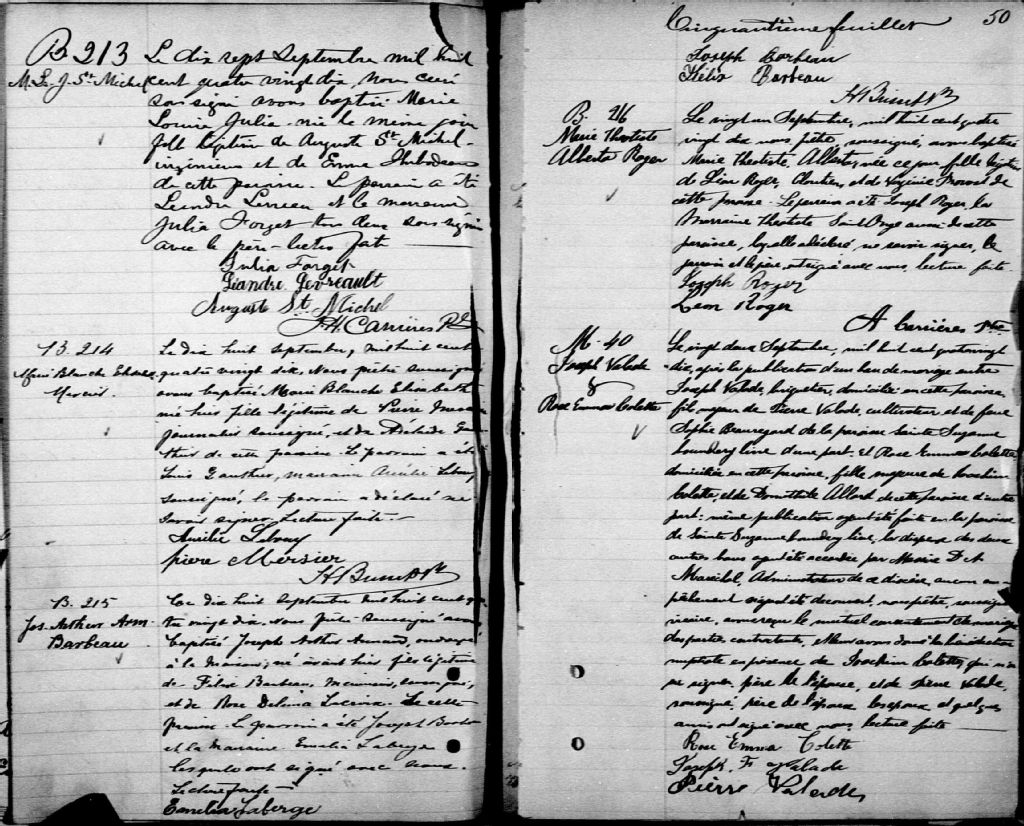 B 213
M. L. J. St Michel
Le dix sept Septembre mil huit
cent quatre vingt dix, Nous curé
soussigné avons baptisé Marie
Louise Julia née le même jour
fille légitime de Auguste St Michel
ingénieur et de Emma Thibodeau
de cette paroisse. Le parrain a été
Leandre et la marraine
Julia Forget tous deux sous signés
avec le père. Lecture fait
Julia Forget
Liandre Gevreault
Auguste St Michel
J. H. Carrières Ptre
B. 214
Marie Blanche
Mercier.
Le dix huit septembre, mil huit cent
quatre vingt dix, Nous prêtre soussigné
avons baptisé Marie Blanche Elisabeth
née hier fille légitime de Pierre
journalier soussigné, et de Adélaide
de cette paroisse. Le parrain a été
Louis Gauthier, marraine Aurélie
soussigné, le parrain a déclaré ne
savoir signer. Lecture faite.
Aurélie
piere Mersier
B. 215
Jos. Arthur Arm
Barbeau
Le dix huit septembre mil huit cent qua
tre vingt dix. Nous Prêtre soussigné avons
baptisé Joseph Arthur Armand, ondoyé
à la maison, né avant hier fils légitime
de Félix Barbeau, menuisier,
et de Rose Delima Lacroix. De cette
paroisse. Le parrain a été Joseph Barbeau
et la marraine Emelia Laberge
lesquels ont signé avec nous.
Lecture faite
Emelia Laberge
50
Cinquantième feuillet
Joseph Barbeau
Félix Barbeau
B. 216
Marie Theotiste
Alberta Roger
Le vingt un Septembre, mil huit cent quatre
vingt dix nous prêtre soussigné, avons baptisé
Marie Theotiste Alberta, née ce jour, fille légitime
de Léon Roger, cloutier, et de Virginie Provost de
cette paroisse. Le parrain a été Joseph Roger, la
Marraine Theotiste Saint Onge aussi de cette
paroisse, laquelle a déclaré ne savoir signer, le
parrain et le père, ont signé avec nous, lecture faite.
Joseph Roger
Leon Roger
A Carrières Ptre
M. 40
Joseph Valade
&
Rose Emma Colette
Le vingt deux Septembre, mil huit cent quatre vingt
dix, après la publication d'un ban de mariage entre
Joseph Valade, briquetier, domicilié en cette paroisse,
fils majeur de Pierre Valade, cultivateur et de feue
Sophie Beauregard de la paroisse Sainte Suzanne
Boundary line d'une part, et Rose Emma Colette
domiciliée en cette paroisse, fille majeure de Joachim
Colette, et de Domithilde Allard de cette paroisse d'autre
part; même publication ayant été faite en la paroisse
de Sainte Suzanne boundary line, la dispense des deux
autres bans ayant été accordée par Messire
Maréchal, Administrateur de ce diocèse, aucun em-
pêchement ayant été découvert, nous prêtre, soussigné
vicaire, avons reçu le mutuel consentement de mariage
des parties contractantes, et leur avons donné la bénédiction
nuptiale en présence de Joachim Colette, qui n'a
pu signer, père de l'épouse, et de Pierre Valade,
soussigné, père de l'époux. Les époux et quelques
amis ont signé avec nous lecture faite
Rose Emma Colette
Joseph. F Valade
Pièrre Valade